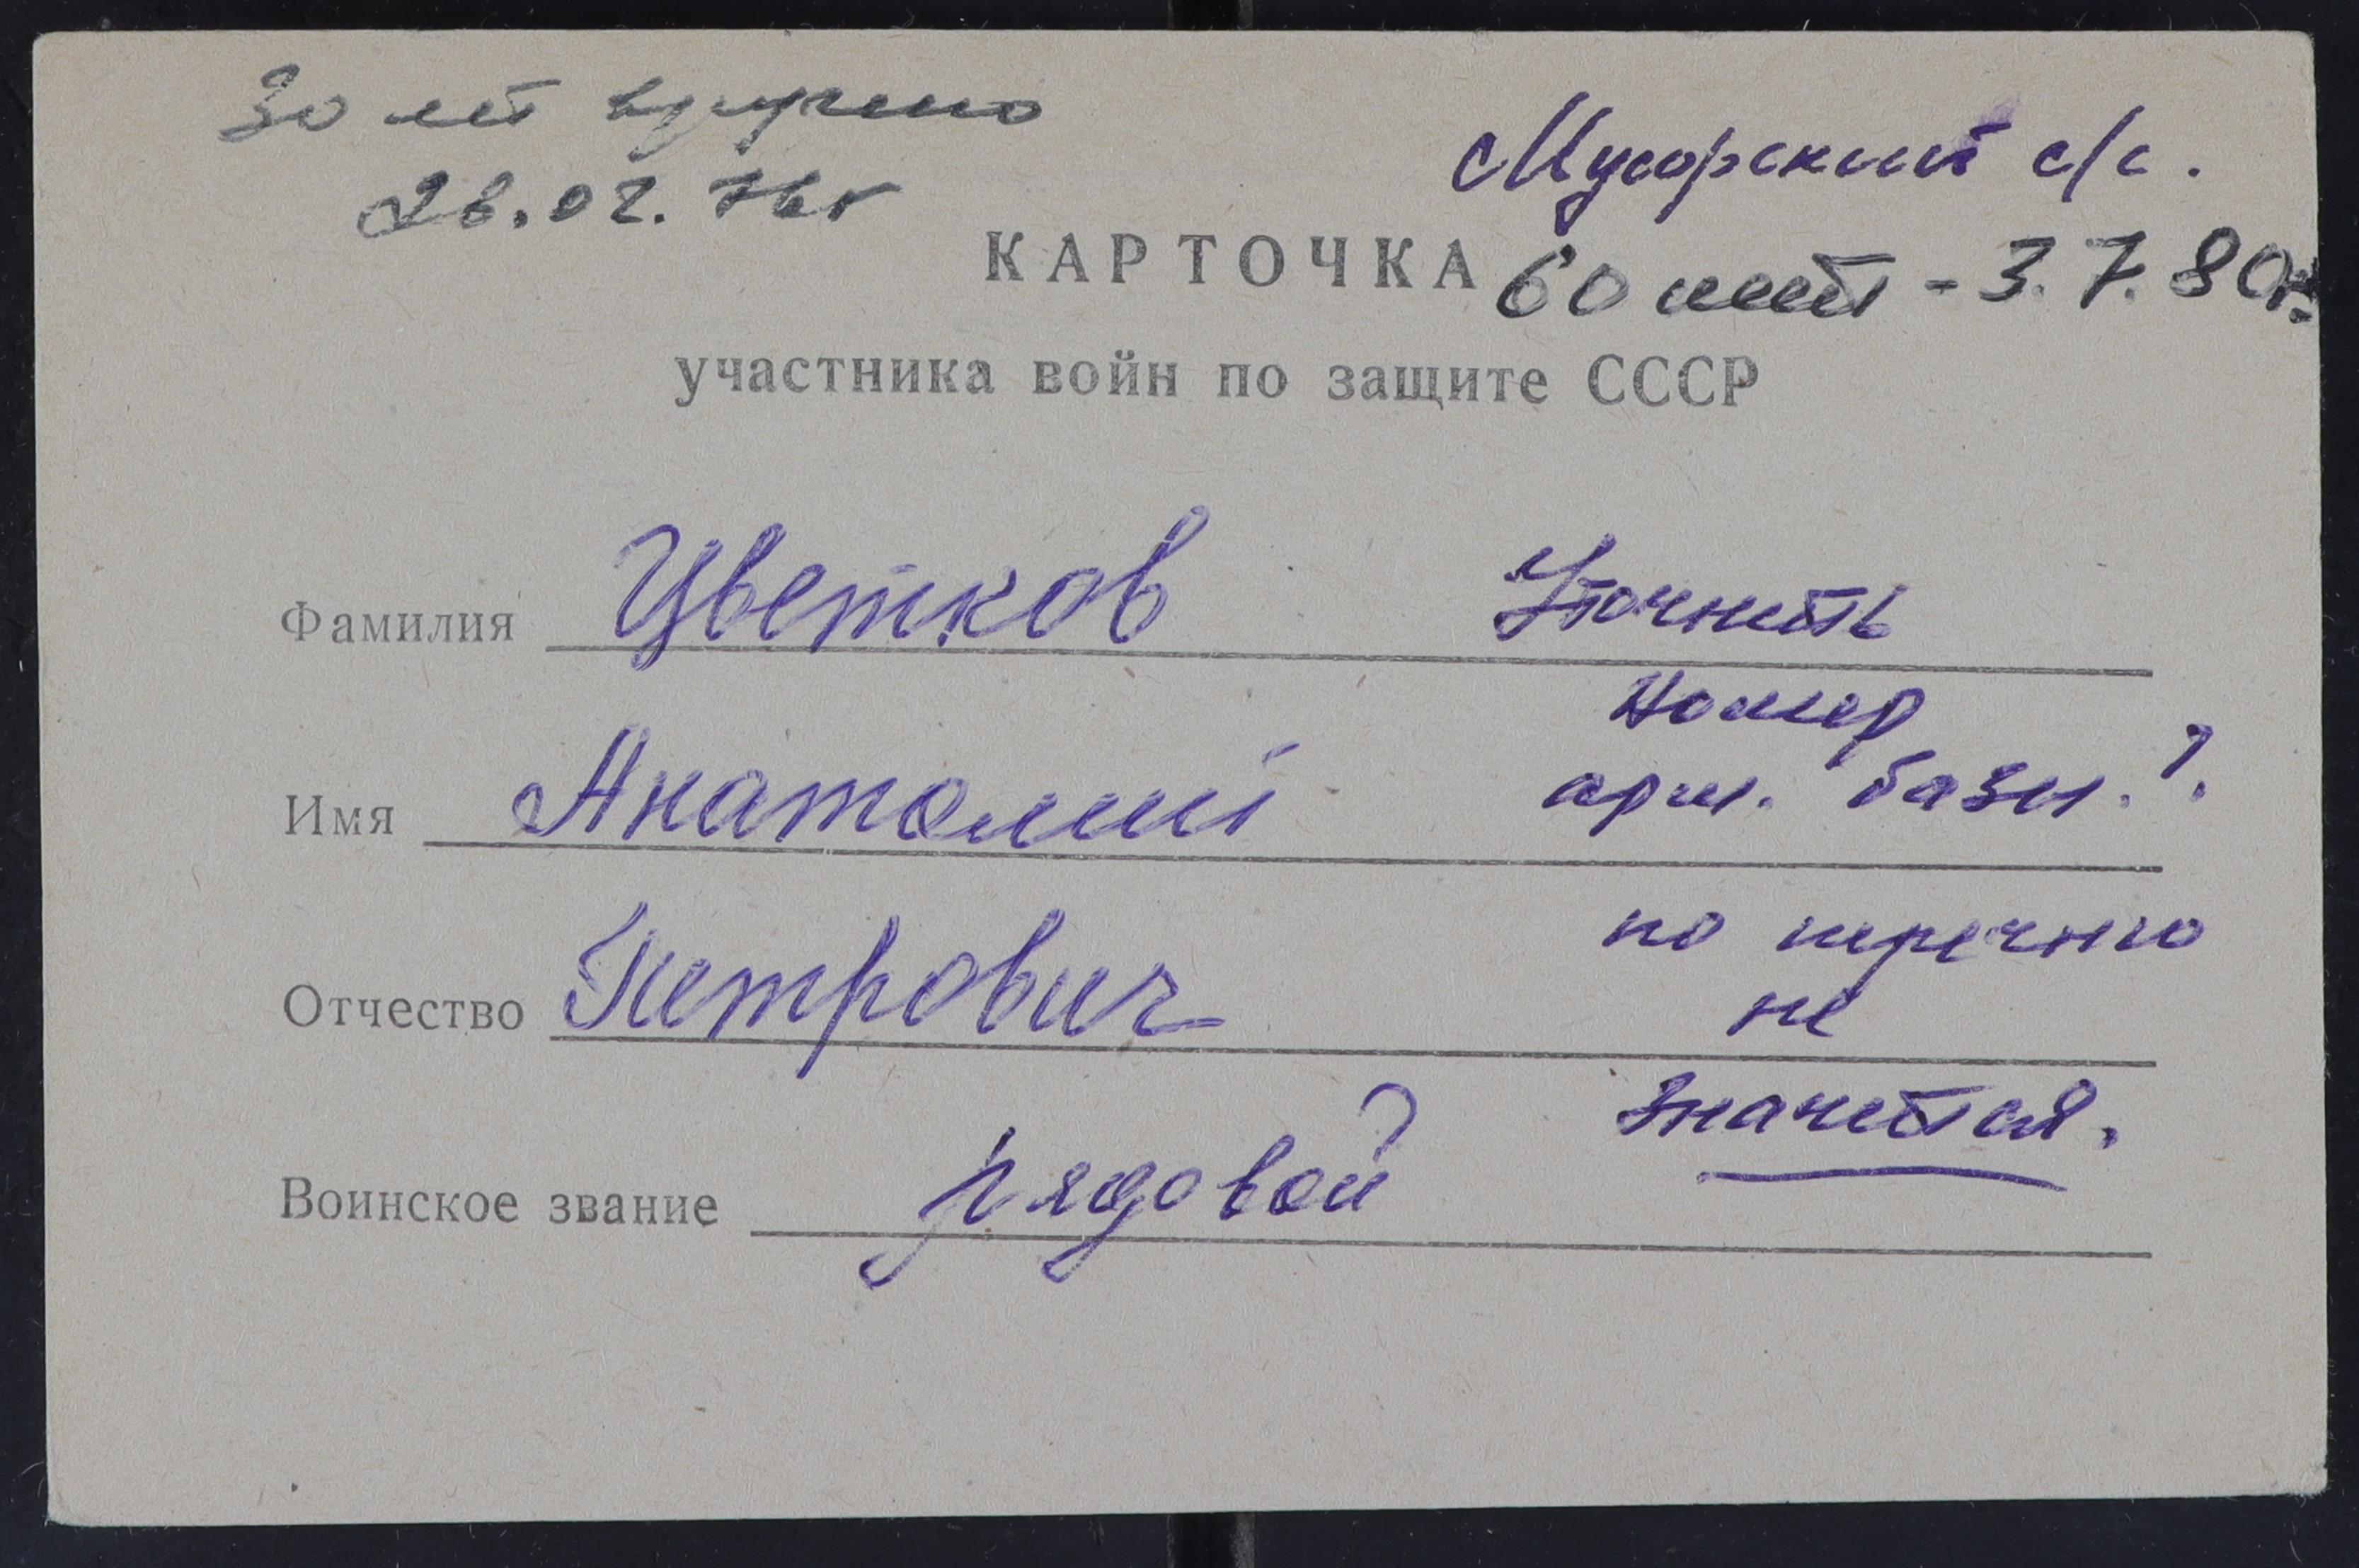 30 лет вручено
28.02.76г
Мусорский с/с.
КАРТОЧКА
60 лет - 3.7.80г.
участника войн по защите СССР
Фамилия Цветков
Уточнить
номер
Имя Анатолий
арм. базы.?
по перечню
Отчество Петрович
не
значится.
Воинское звание рядовой